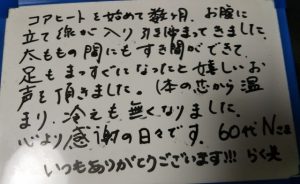 コアヒートを始めて数ヶ月.お腹に
立て線が入り引き締まってきました.
太ももの間にもすき間ができて.
足もまっすぐになったと嬉しいお
声を頂きました.(体の芯から温
まり.冷えも無くなりました.
心より感謝の日々です.60代Nさま
いつもありがとうございます!!! らく美